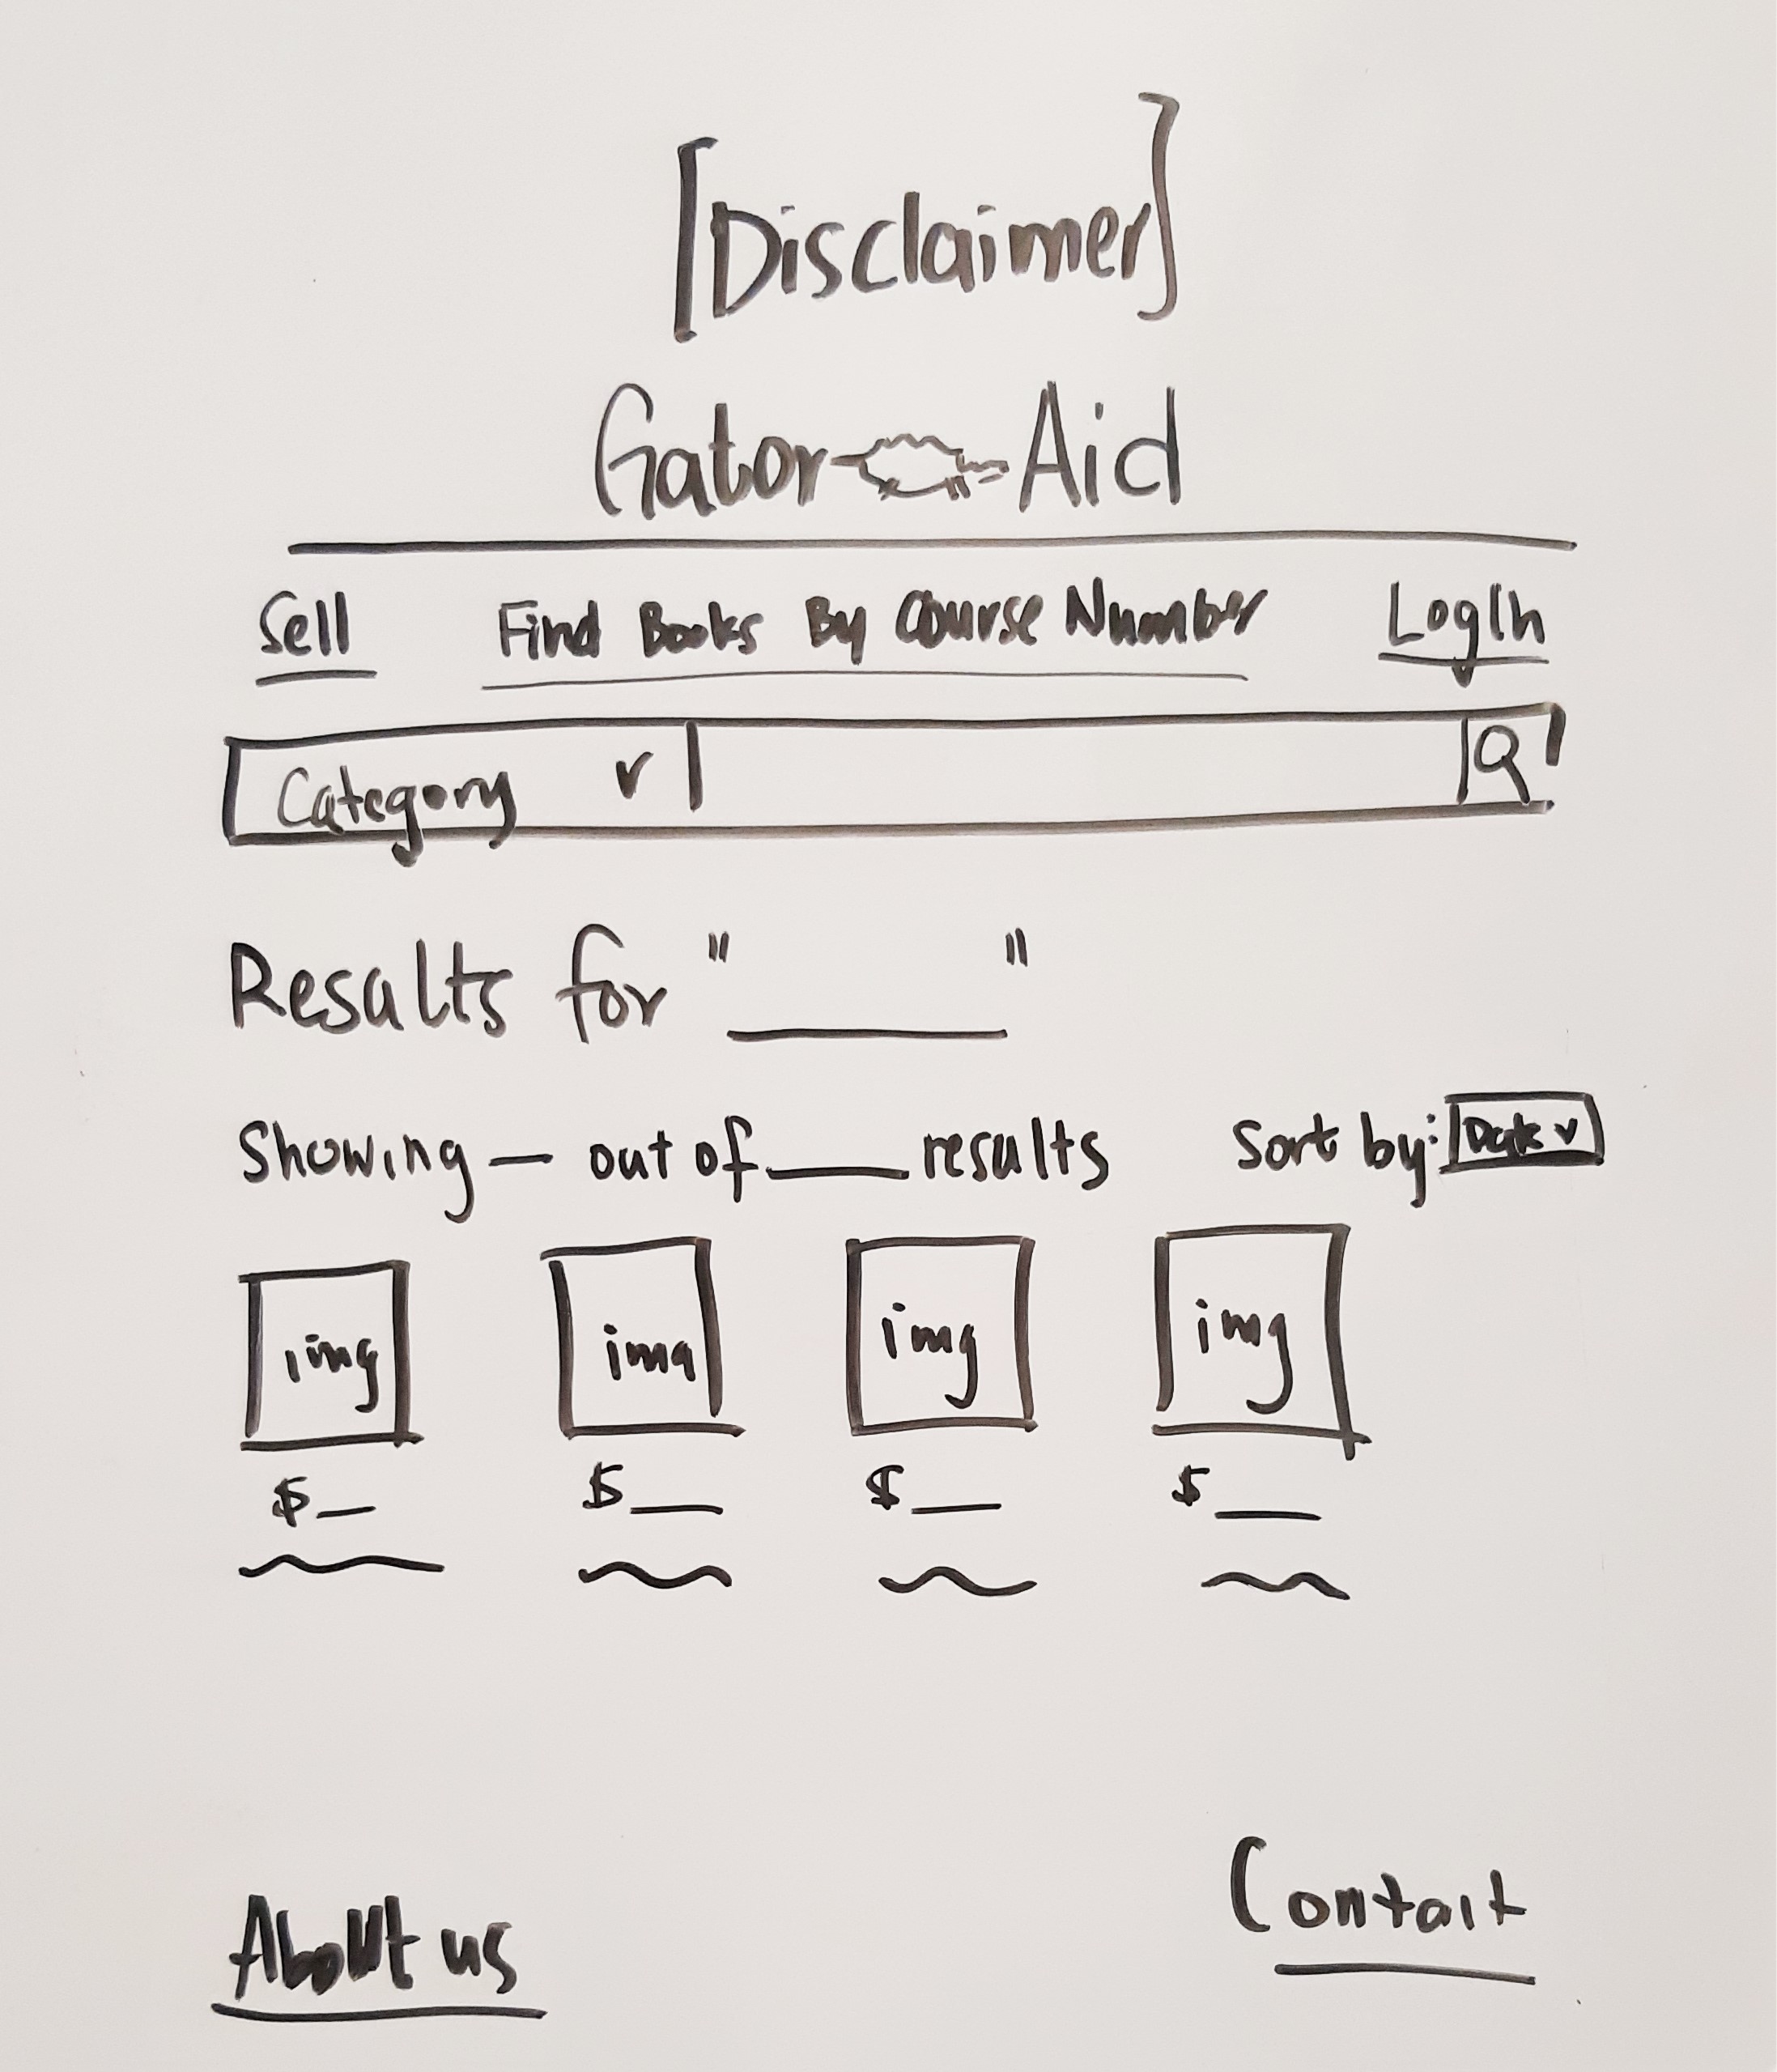 [Disclaimer]
Gator Aid
Sell Find Books By Course Number LogIn
Category v
Results for "_____"
Showing _ out of ___ results Sort by: Date v
img img img img
$_ $__ $__ $__
About us Contact